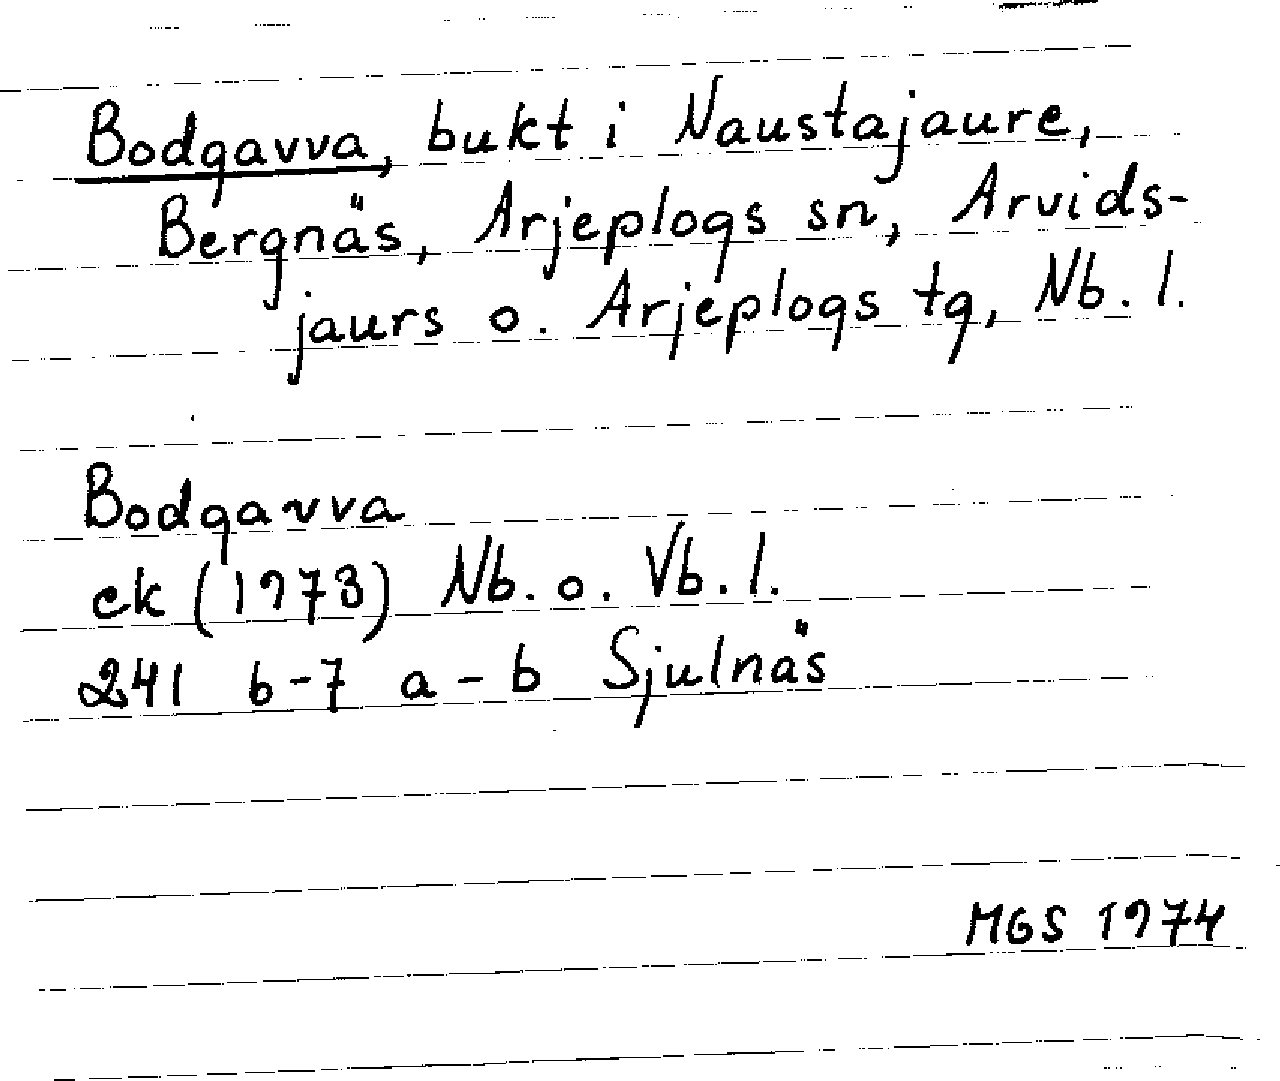 Bodgavva, bukt i Naustajaure,
Bergnäs, Arjeplogs sn, Arvids-
jaurs o. Arjeplogs tg, Nb. l.
Bodgavva
ek (1973) Nb. o. Vb. l.
241 b-7 a-b Sjulnäs
MGS 1974